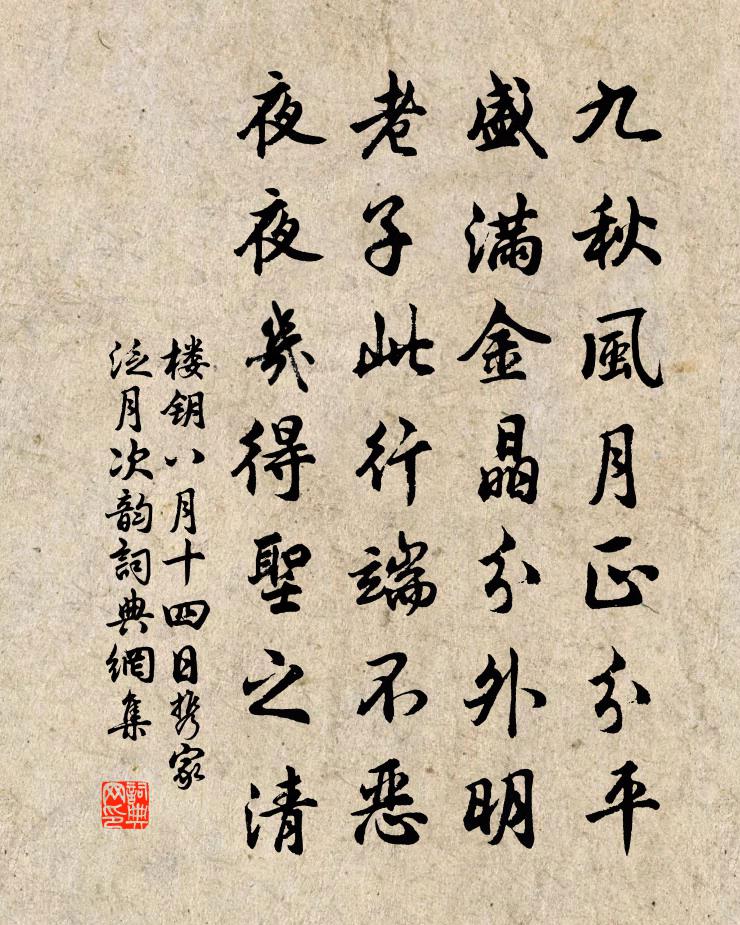 九秋風月正分平
盛滿金晶分外明
老子此行端不惡
夜夜幾得聖之清
楼钥八月十四日携家
泛月次韵詞典網集
詞典
网印